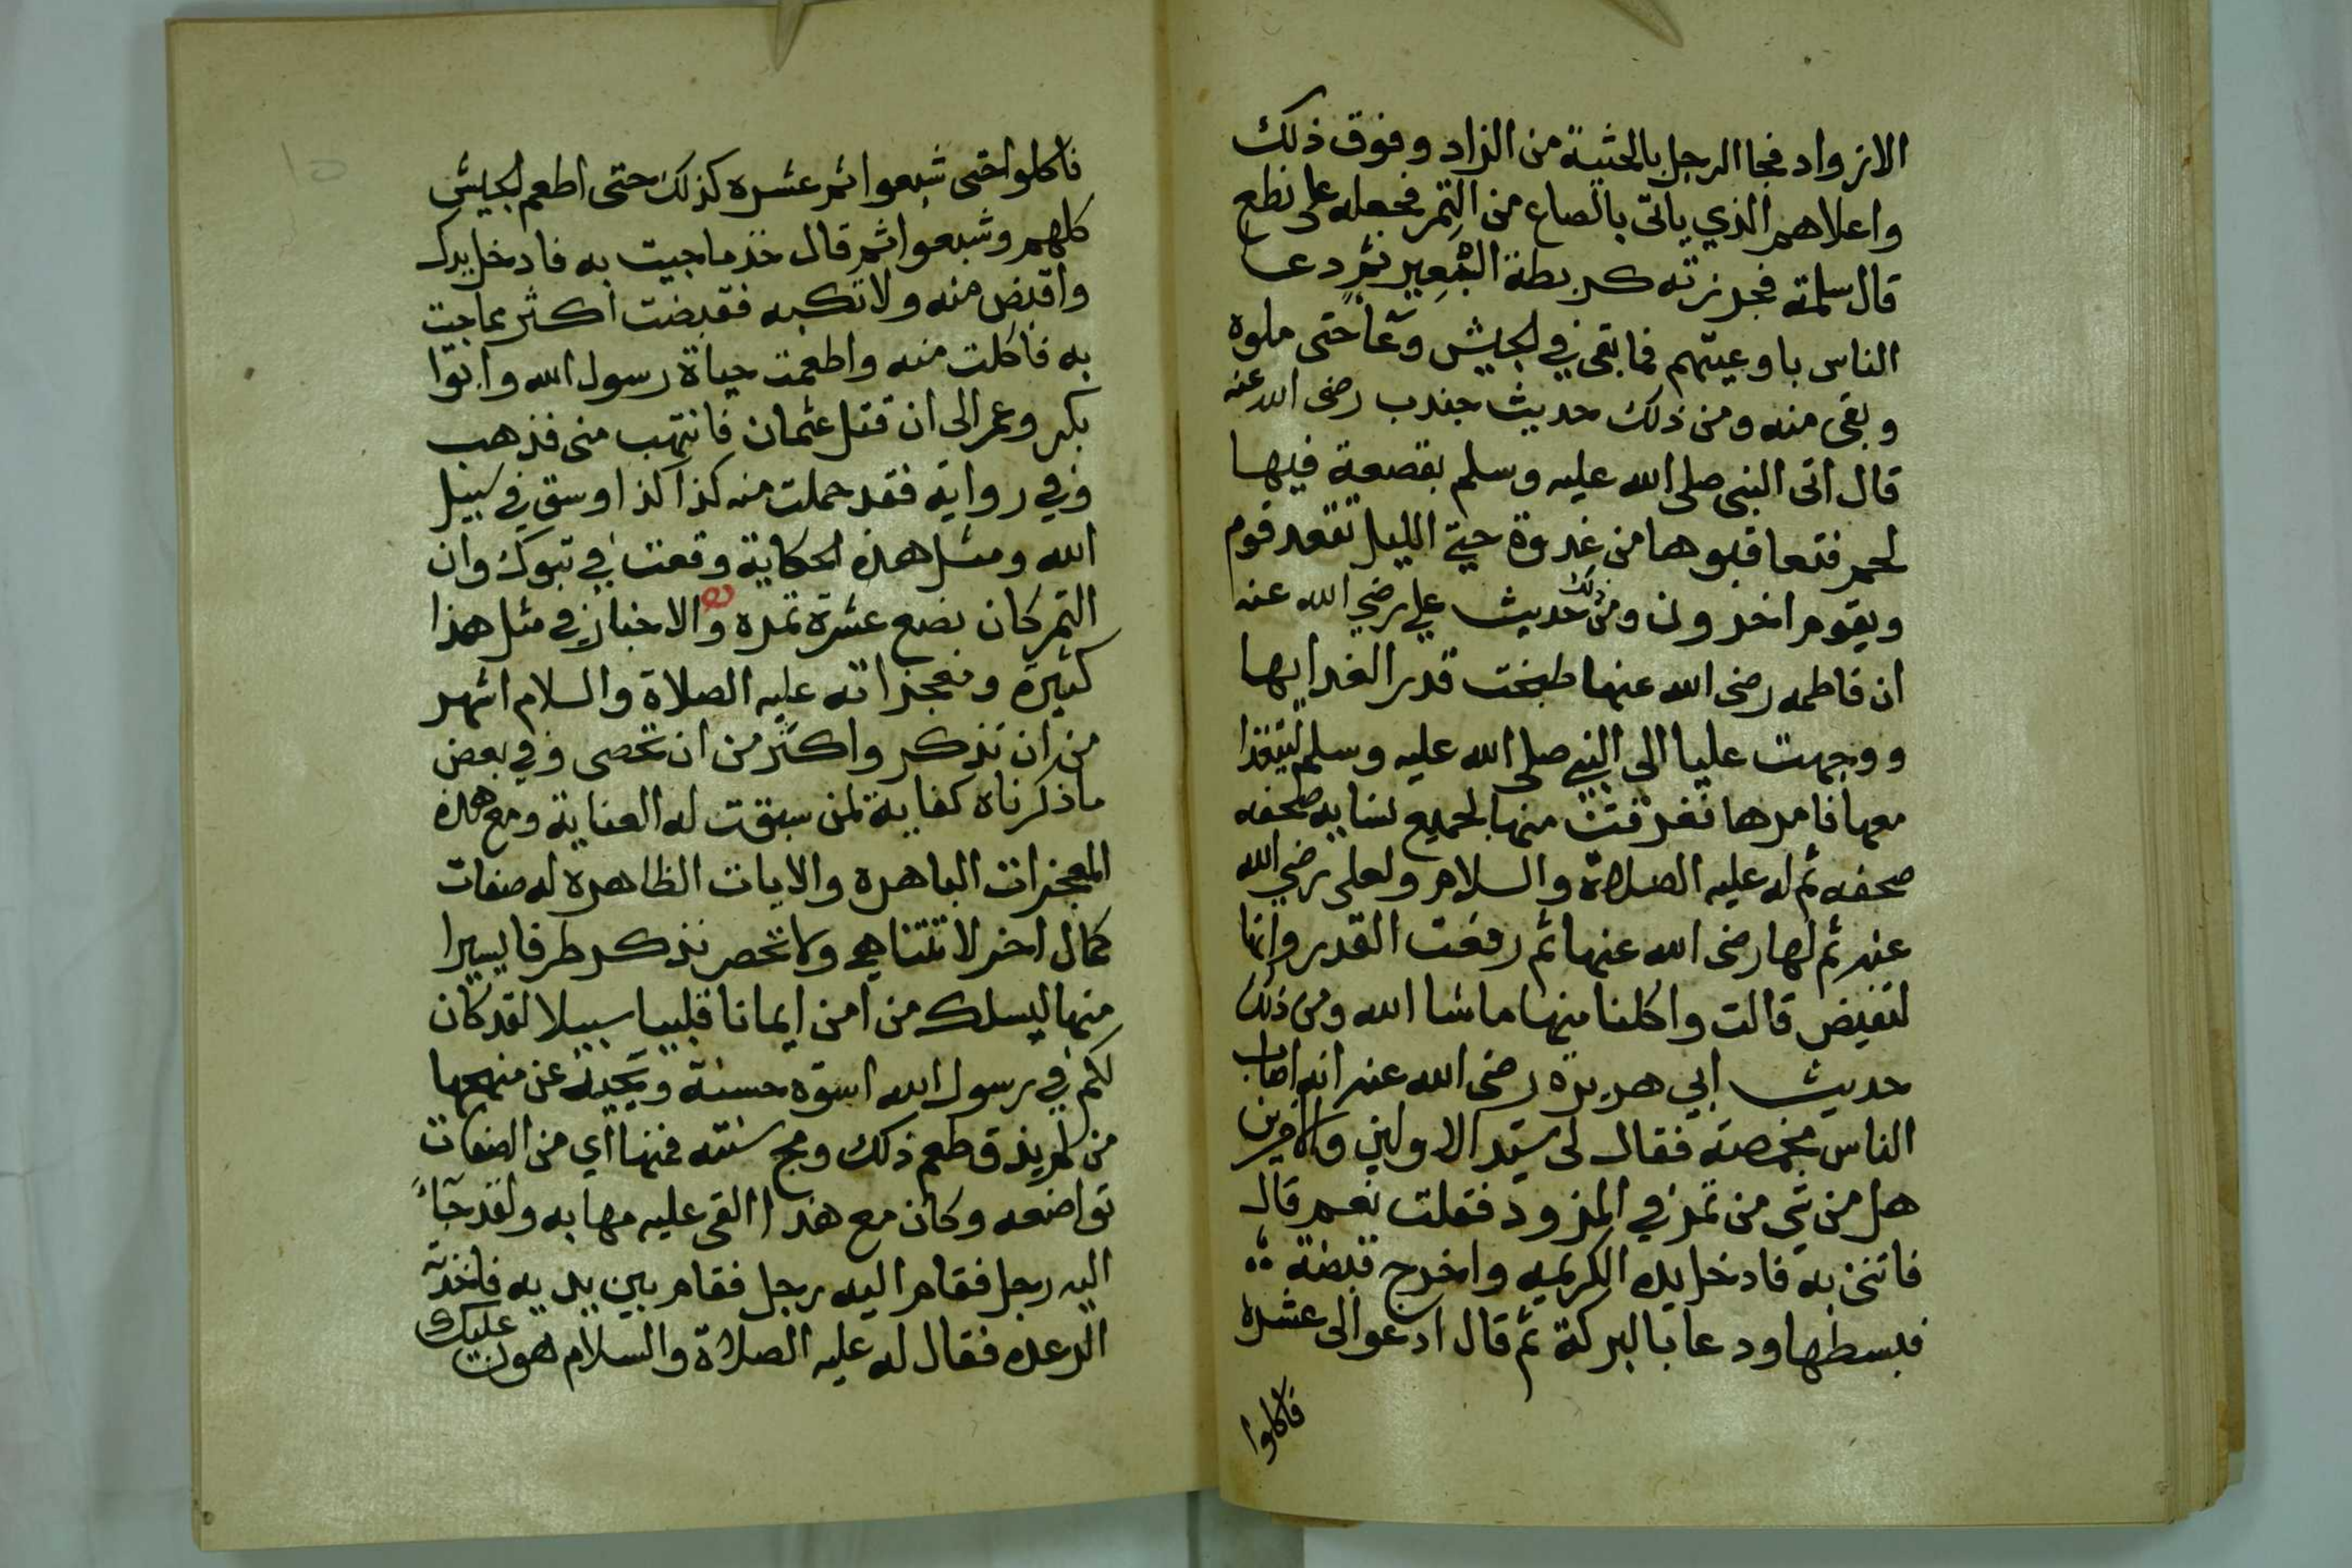 الازواد فجا الرجل بالحثية من الزاد وفوق ذلك
واعلاهم الذي ياتى بالصاع من التمر فجعله على نطع
قال سلمة فحزرته كربطة البعير ثم دعا
الناس باوعيتهم فما بقى في الجيش وعآ حتى ملوه
وبقى منه ومن ذلك حديث جندب رضى الله عنه
قال اتى النبى صلى الله عليه وسلم بقصعة فيها
لحم فتعاقبوها من غدوة حتى الليل تقعد قوم
ويقوم اخرون ومن ذلك حديث علي رضي الله عنه
ان فاطمه رضى الله عنها طبخت قدر الغدايها
ووجهت عليا الى النبي صلى الله عليه وسلم ليتغذا
معها فامرها فغرفت منها لجميع نسايه صحفه
صحفه ثم له عليه الصلاة والسلام ولعلى رضي الله
عنه ثم لها رضى الله عنها ثم رفعت القدر وانها
لتفيض قالت واكلنا منها ماشا الله ومن ذلك
حديث ابي هريرة رضى الله عنه انه اصاب
الناس مخمصة فقال لى سيد الاولين والاخرين
هل من شي من تمر في المزود فقلت نعم قال
فاتنى به فادخل يده الكريمه واخرج قبضة
فبسطها ودعا بالبركة ثم قال ادعوا لى عشره
فاكلوا
فاكلوا حتى شبعوا ثم عشره كذلك حتى اطعم الجيش
كلهم وشبعوا ثم قال خذ ماجيت به فادخل يدك
واقبض منه ولا تكبه فقبضت اكثر مماجيت
به فاكلت منه واطعمت حياة رسول الله وابوا
بكر وعمر الى ان قتل عثمان فانتهب منى فذهب
وفي رواية فقد حملت منه كذا كذا وسق في سبيل
الله ومثل هذه الحكاية وقعت في تبوك وان
التمر كان بضع عشرة تمره والاخبار في مثل هذا
كثيرة ومعجزاته عليه الصلاة والسلام اشهر
من ان تذكر واكثر من ان تحصى وفي بعض
ماذكرناه كفاية لمن سبقت له العناية ومع هذه
المعجزات الباهرة والايات الظاهره له صفات
كمال اخر لا تتناهي ولا تحصر نذكر طرفا يسيرا
منها ليسلك من امن ايمانا قلبيا سبيلا لقد كان
لكم في رسول الله اسوة حسنة ويحيد عن منهجها
من لم يذق طعم ذلك ومج سنته فمنها اي من الصفات
تواضعه وكان مع هذا القى عليه مهابه ولقد جآء
اليه رجل فقام اليه رجل فقام بين يديه فاخذته
الرعده فقال له عليه الصلاة والسلام هون عليك